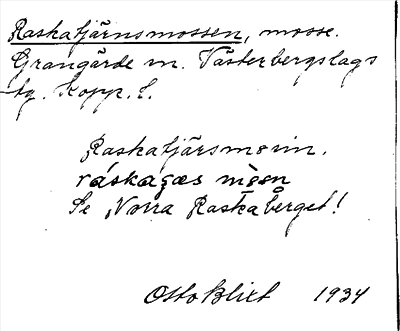 Raskatjärnsmossen, mosse.
Grangärde sn. Västerbergslags
tg. Kopp. l.
Raskatjärsmosin.
ráskaças mo̓sen
Se Norra Raskaberget!
Otto Blixt 1934